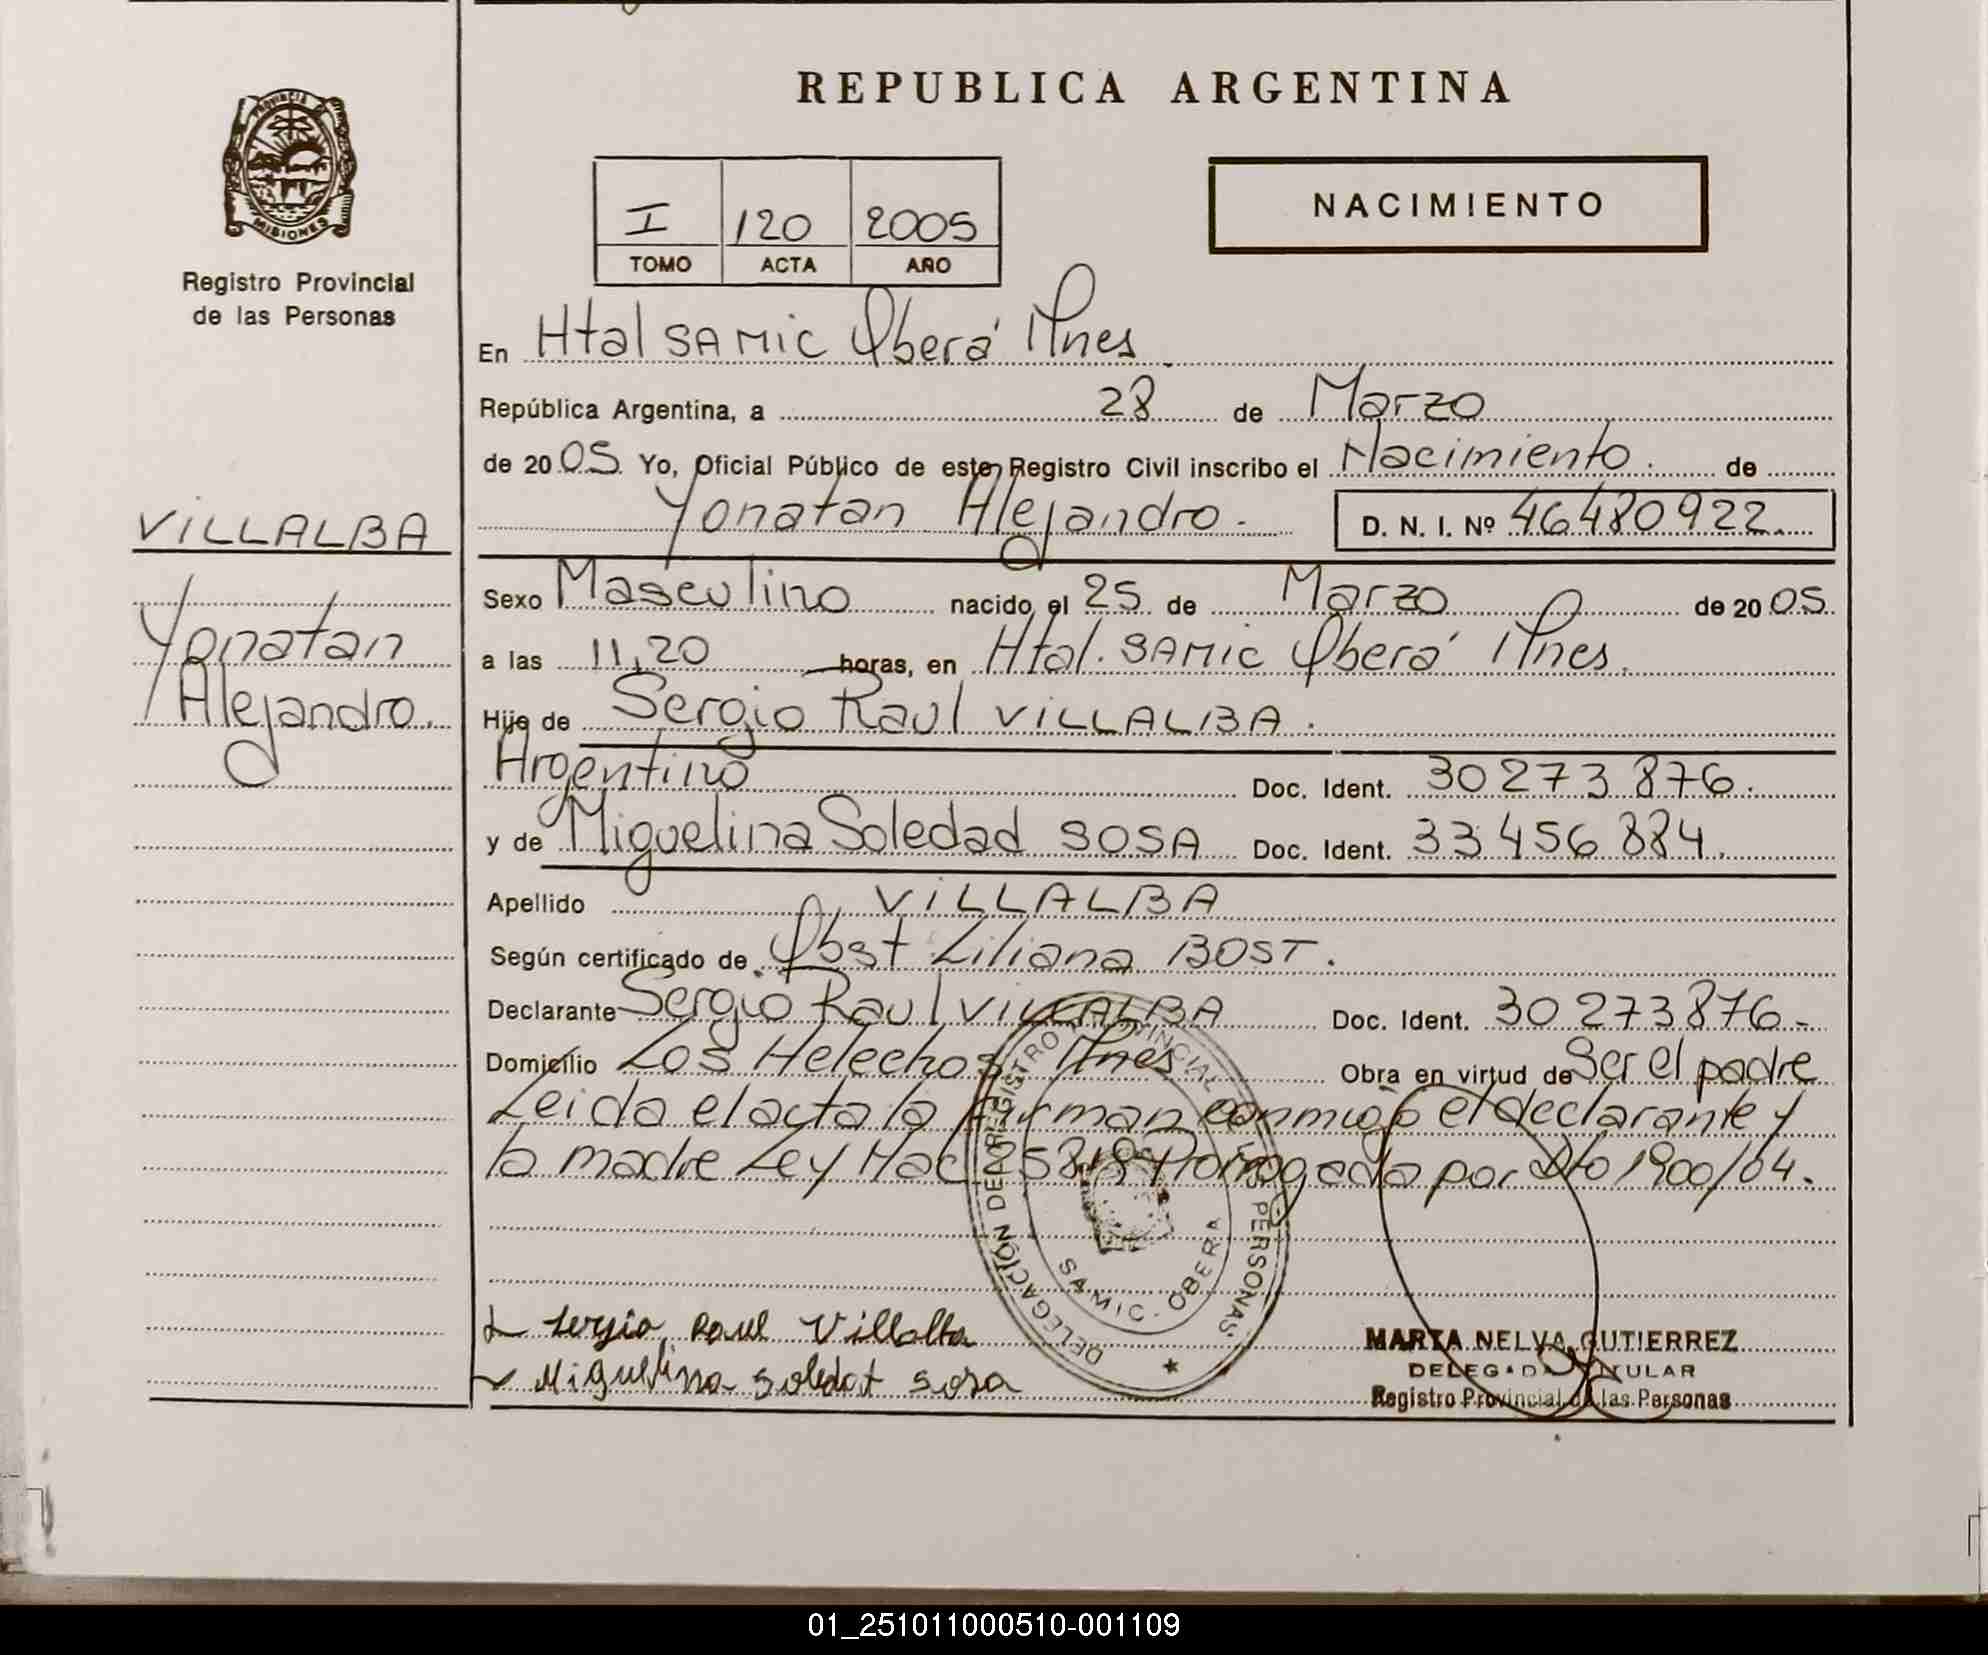 REPUBLICA ARGENTINA
PROVINCIA DE
MISIONES
Registro Provincial
de las Personas
I 120 2005
TOMO ACTA AÑO
NACIMIENTO
En Htal SAMIC Oberá Mnes
República Argentina, a 28 de Marzo
de 2005 Yo, Oficial Público de este Registro Civil inscribo el Nacimiento. de
Yonatan Alejandro. D. N. I. Nº 46480922.
VILLALBA
Yonatan
Alejandro.
Sexo Masculino nacido el 25 de Marzo de 2005
a las 11,20 horas, en Htal. SAMIC Oberá Mnes.
Hijo de Sergio Raul VILLALBA.
Argentino Doc. Ident. 30273876.
y de Miguelina Soledad SOSA Doc. Ident. 33456884.
Apellido VILLALBA
Según certificado de Obst Liliana BOST.
Declarante Sergio Raul VILLALBA Doc. Ident. 30273876-
Domicilio Los Helechos Mnes Obra en virtud de Ser el padre
Leida el acta la firman conmigo el declarante y
la madre Ley Nac 25819 Prorrogada por Dto 1900/04.
DELEGACIÓN DEL REGISTRO PROVINCIAL DE LAS PERSONAS
SAMIC - OBERA
Sergio Raul Villalba
Miguelina Soledat Sosa
MARTA NELVA GUTIERREZ
DELEGADA TITULAR
Registro Provincial de las Personas
01_251011000510-001109